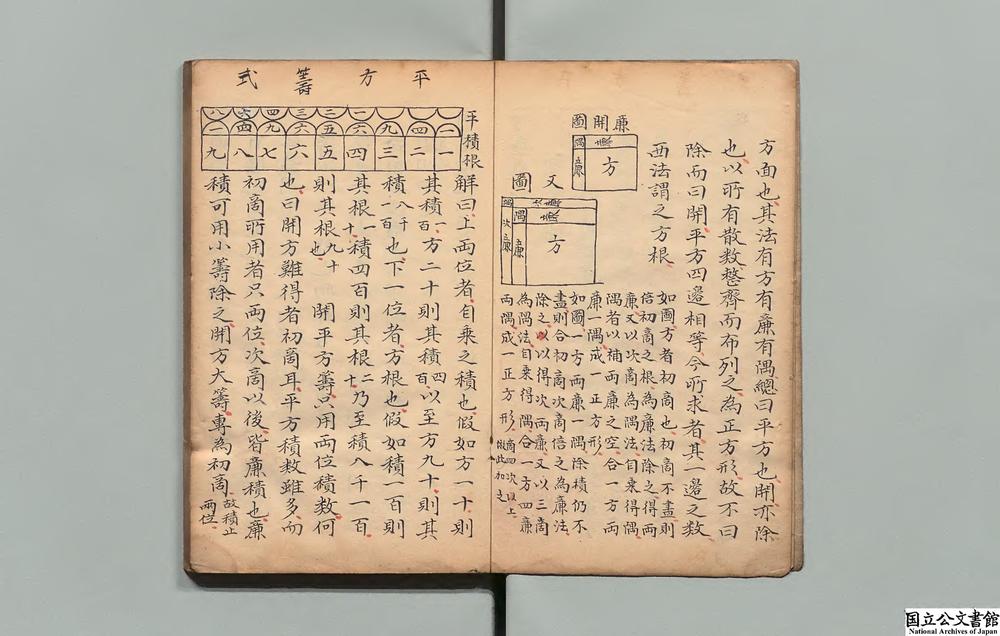 方面也其法有方有廉有隅總曰平方也開亦除
也以所有散数整齊而布列之為正方形故不曰
除而曰開平方四邉相等今所求者其一邉之数
西法謂之方根
廉開圖
隅 廉
廉 方
又圖
隅 次廉
次廉 隅 廉
廉 方
如圖方者初商也初商不盡則
倍初商之根為廉法除之得兩
廉又以次商為隅法自乗得隅
隅者以補兩廉之空合一方兩
廉一隅成一正方形
如圖一方兩廉一隅除積仍不
盡則合初商次商倍之為廉法
除之以得次兩廉又以三商
為隅法自乗得隅合一方四廉
兩隅成一正方形 商四次以上倣此加之
平方籌式
平積根
一 四 九 一六 二五 三六 四九 六四 八一
一 二 三 四 五 六 七 八 九
解曰上兩位者自乗之積也假如方一十則
其積一百方二十則其積四百以至方九十則其
積八千一百也下一位者方根也假如積一百則
其根一十積四百則其根二十乃至積八千一百
則其根九十也 開平方籌只用兩位積数何
也曰開方難得者初商耳平方積数雖多而
初商所用者只兩位次商以後皆廉積也廉
積可用小籌除之開方大籌專為初商故積止兩位